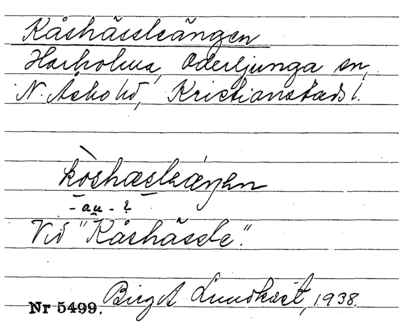 Kåshässleängen
Harholma, Oderljunga sn,
N. Åsbo hd, Kristianstads l.
kòshæsleǽŋen
- au - ?
Vid "Kåshässle".
Nr 5499. Birgit Lundkvist, 1938.